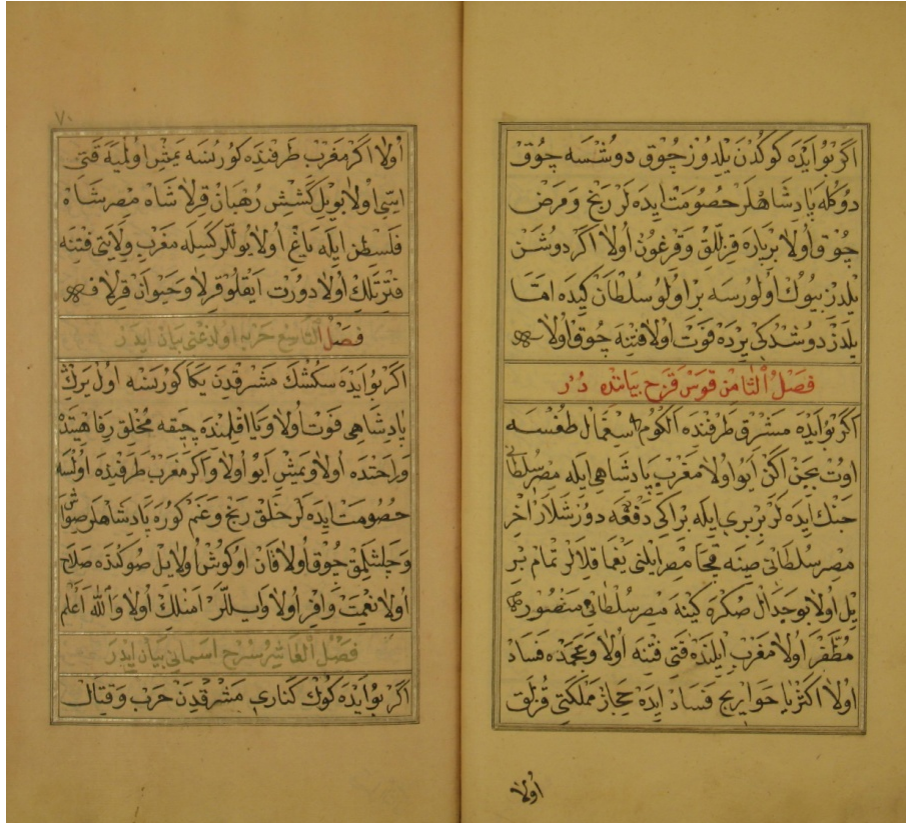 اگر بو آیده کوکدن یلدوز چوق دوشسه چوق
دوکله پادشاهلر حصومت ایده لر رنج و مرض
چوق اولا بزباره قزللق و قرغون اولا اگر دوشن
یلدز بیوك اولورسه بر اولو سلطان کیده امّا
یلدز دوشدکی یرده فوت اولا فتنه چوق اولا
فصل الثامن قوس قزح بیاننده در
اگر بو آیده مشرق طرفنده الکوم اسغمال طغسه
اوت بجن اکن ایو اولا مغرب پادشاهی ایله مصر سلطانی
جنك ایده لر بربری ایله بر اکی دفعه دوزشلار آخر
مصر سلطانی صینه قجا مصر ایلنی یغما قلالر تمام بر
ییل اولا بو جدال صکره کینه مصر سلطانی منصور
مظفر اولا مغرب ایلنده قتی فتنه اولا و عجمده فساد
اولا اکثریا حواریج فساد ایده حجاز مملکتی قزلق
اولا
٧٠
اولا اگر مغرب طرفنده کورنسه یمش اولمیه قتی
اسّی اولا بو ییل کشیش رهبان قرلا شاه مصر شاه
فلسطن ایله یاغی اولا یوللر کسیله مغرب ولایتی فتنه
فترتلك اولا دورت آیقلو قرلا و حیوان قرلا ف
فصل التاسع حربه اولدغنی بیان ایدر
اگر بو آیده سکشك مشرقدن یکا کورنسه اول یرك
پادشاهی فوت اولا و یا اقلمنده چیقه مخلق رفاهیتده
و راحتده اولا و یمش ایو اولا و اگر مغرب طرفنده اولسه
حصومت ایده لر خلق رنج و غم کوره پادشاهلر صواش
و چلشلق چوق اولا قان اوکوش اولا ییل صوکنده صلاح
اولا نعمت وافر اولا و ایللر امنلك اولا والله اعلم
فصل العاشر سرح اسمانی بیان ایدر
اگر بو آیده کوك کناری مشرقدن حرب و قتال